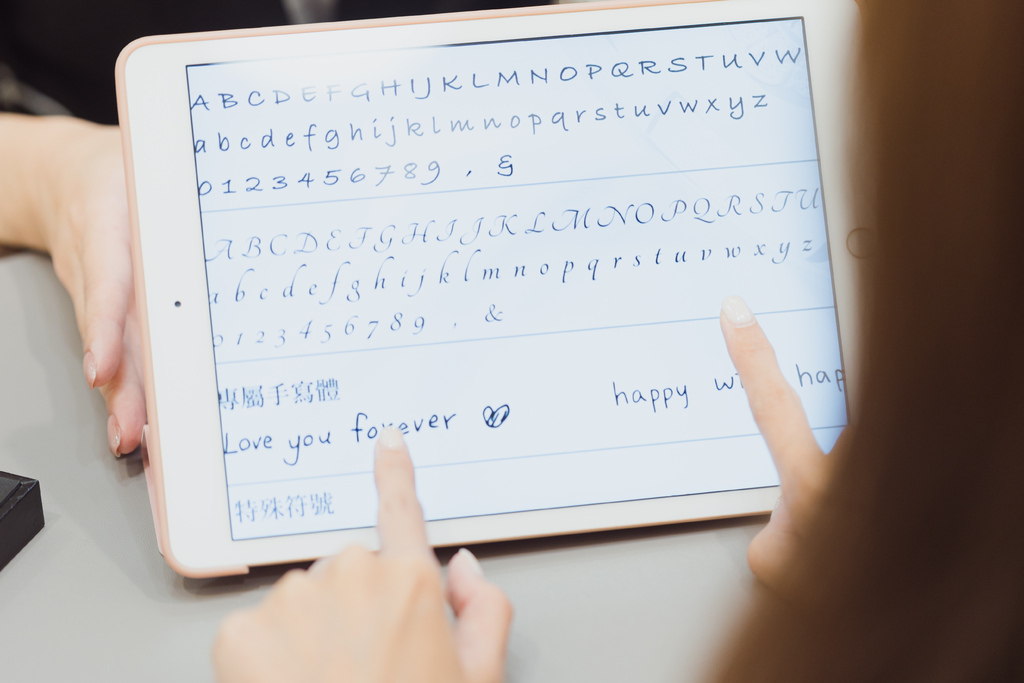 A B C D E F G H I J K L M N O P Q R S T U V W
a b c d e f g h i j k l m n o p q r s t u v w x y z
0 1 2 3 4 5 6 7 8 9 , &
A B C D E F G H I J K L M N O P Q R S T U
a b c d e f g h i j k l m n o p q r s t u v w x y z
0 1 2 3 4 5 6 7 8 9 , &
專屬手寫體
Love you forever ♡ happy
特殊符號